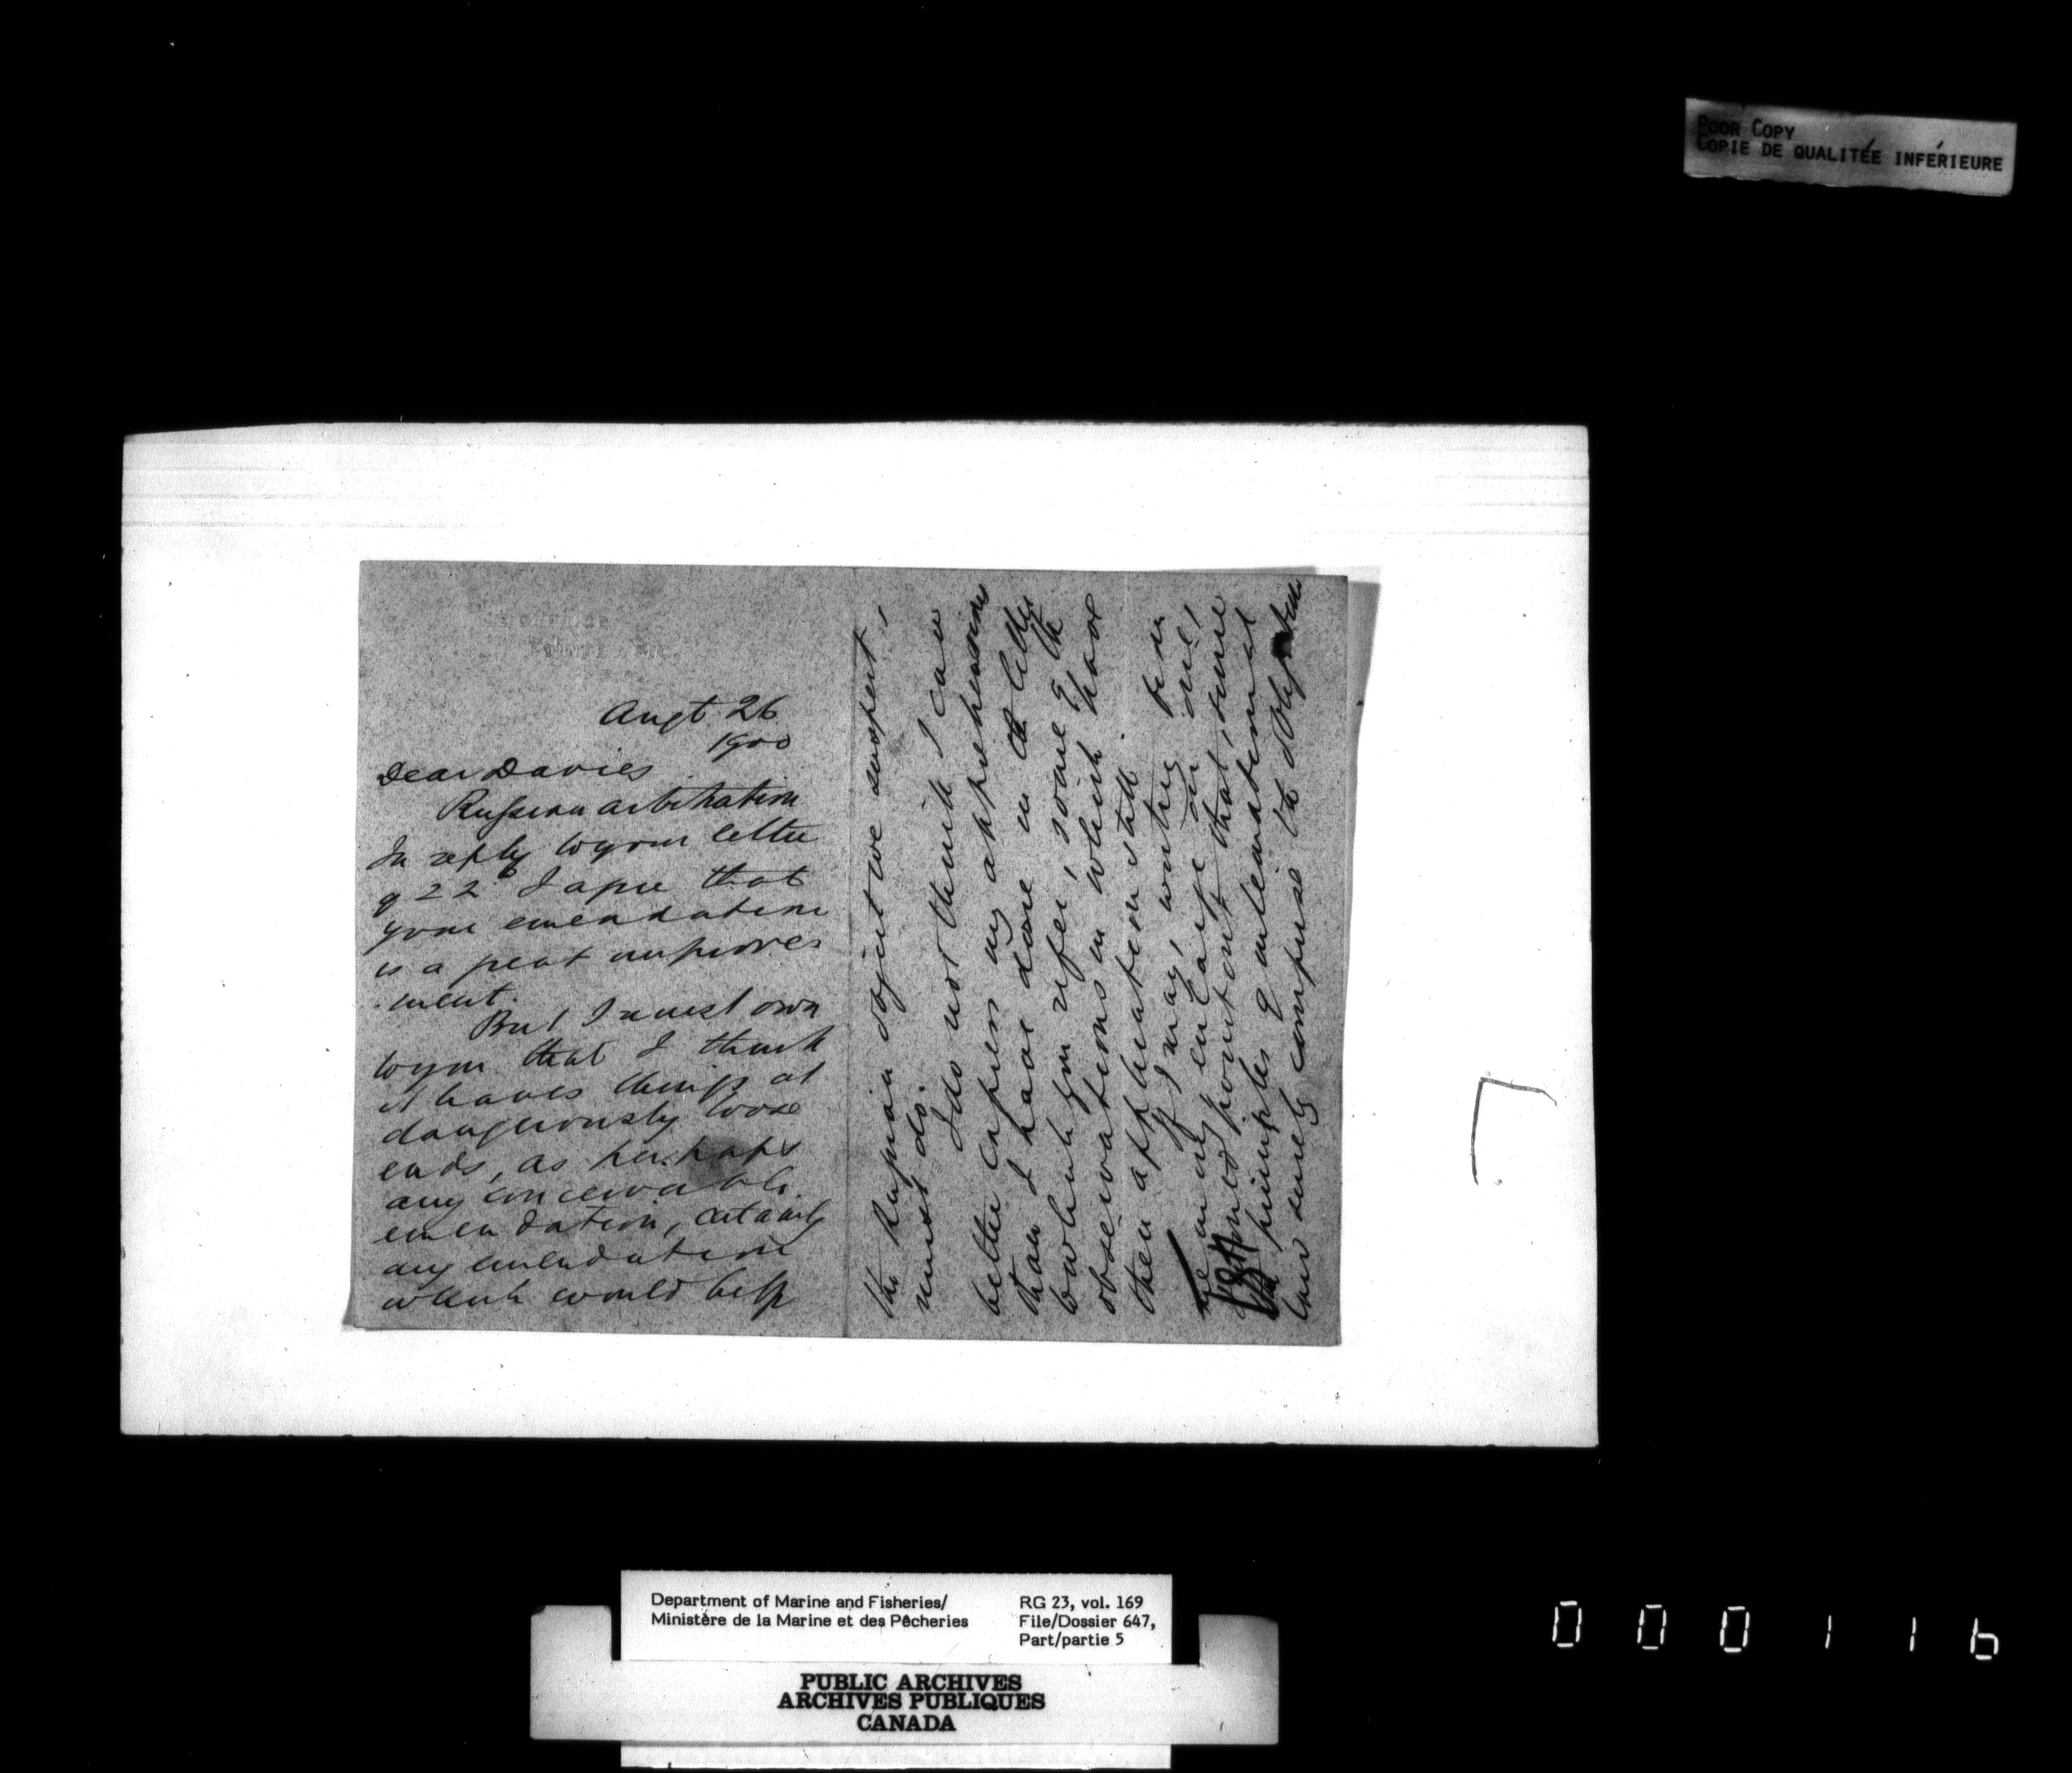 POOR COPY
COPIE DE QUALITÉE INFÉRIEURE
Augt. 26
1900
Dear Davies
Russian arbitration
In reply to your letter
of 22 I agree that
your emendation
is a great improve
ment.
But I must own
to you that I think
it leaves things at
dangerously loose
ends, as perhaps
any conceivable
emendation, certainly
any emendation
which would help
the Russian objective we suspect,
must do.
I do not think I can
better express my apprehensions
than I have done in the letter
to which you refer, some of the
observations in which have
their application still.
If I may, writing
me in any case
point out that, since
the principles of international
law surely comprise the obligation
Department of Marine and Fisheries/
Ministère de la Marine et des Pêcheries
RG 23, vol. 169
File/Dossier 647,
Part/partie 5
PUBLIC ARCHIVES
ARCHIVES PUBLIQUES
CANADA
000116